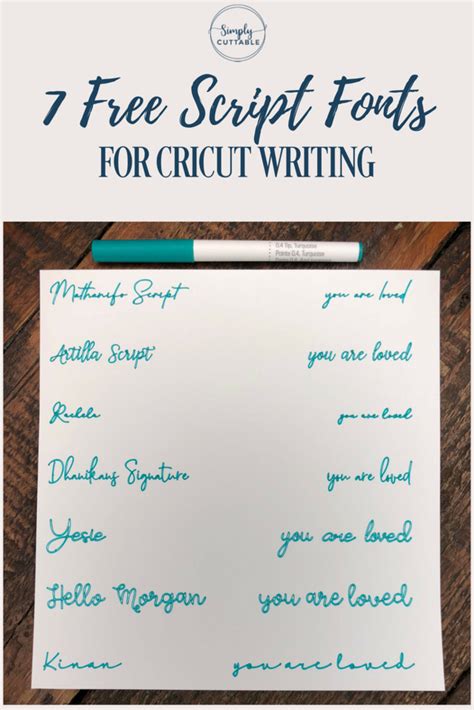 Simply
CUTTABLE
7 Free Script Fonts
FOR CRICUT WRITING
0.4 Tip, Turquoise
Pointe 0.4, Turquoise
Mathanifo Script you are loved
Artilla Script you are loved
Rachela you are loved
Dhanikans Signature you are loved
Yesie you are loved
Hello Morgan you are loved
Kinan you are loved